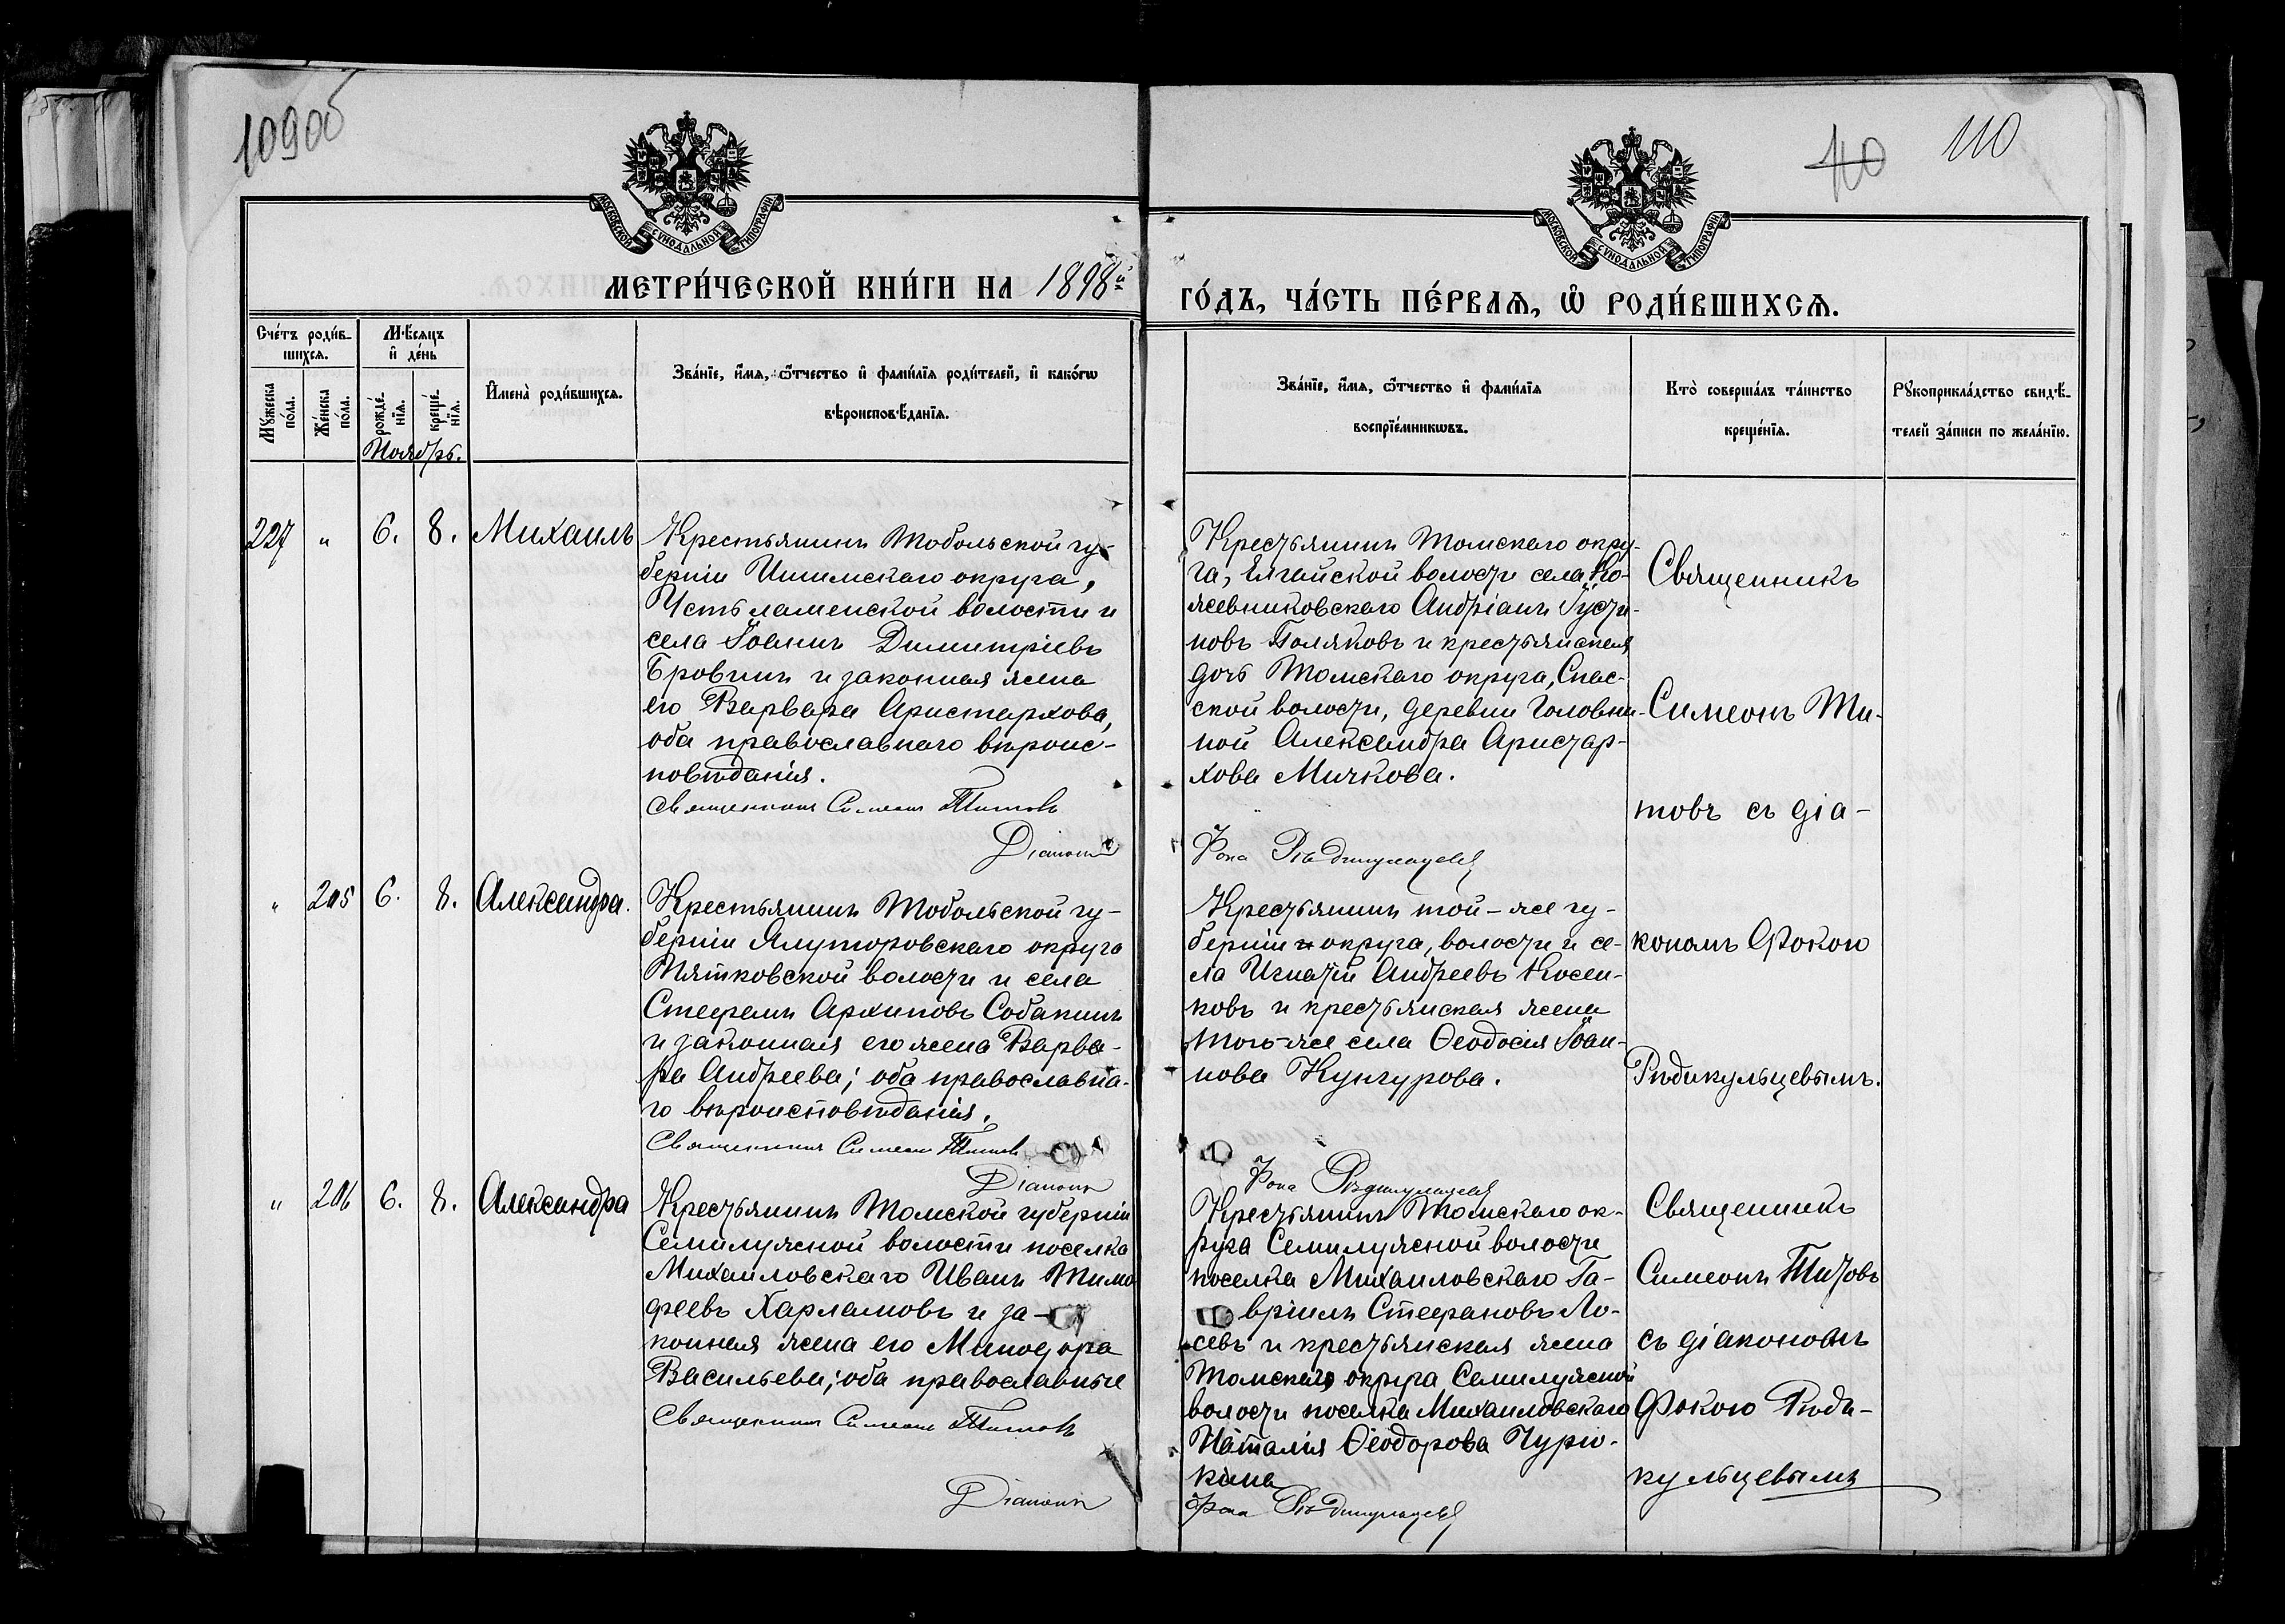 109об
110
110
МОСКОВСКОЙ СѴНОДАЛЬНОЙ ТИПОГРАФІИ
МОСКОВСКОЙ СѴНОДАЛЬНОЙ ТИПОГРАФІИ
МЕТРИ́ЧЕСКОЙ КНИ́ГИ НА 1898й
ГО́ДЪ, ЧА́СТЬ ПЕ́РВАѦ, Ѡ҆ РОДИ́ВШИХСѦ.
Сче́тъ роди́в-
шихсѧ.
Мꙋжеска
по́ла.
Же́нска
по́ла.
Мѣсѧцъ
и҆ де́нь
рожде́-
нїѧ.
креще́-
нїѧ.
Ноябрь.
И҆мена̀ роди́вшихсѧ.
Зва́нїе, и҆́мѧ, ѻ҆́тчество и҆ фамилїѧ роди́телей, и҆ како́гѡ
вѣроисповѣ́данїѧ.
Зва́нїе, и҆́мѧ, ѻ҆́тчество и҆ фамилїѧ
воспрїе́мникѡвъ.
Кто̀ соверша́лъ та́инство
креще́нїѧ.
Рꙋкоприкла́дство свидѣ́-
телей за́писи по жела́нїю.
227 " 6. 8. Михаилъ
Крестьянинъ Тобольской гу-
берніи Ишимскаго округа,
Усть ламенской волости и
села Іоаннъ Димитріевъ
Бровинъ и законная жена
его Варвара Аристархова,
оба православнаго вѣроис-
повѣданія.
Священникъ Симеонъ Титовъ
Діаконъ
Крестьянинъ Томскаго окру-
га, Елгайской волости села Ко-
жевниковскаго Андріанъ Іусти-
новъ Поляковъ и крестьянская
дочь Томскаго округа, Спас-
ской волости, деревни Головни-
ной Александра Аристар-
хова Мичкова.
Фока Рѣдикульцевъ
Священникъ
Симеонъ Ти-
товъ съ діа-
кономъ Фокою
Рѣдикульцевымъ.
" 205 6. 8. Александра.
Крестьянинъ Тобольской гу-
берніи Ялуторовскаго округа
Пятковской волости и села
Стефанъ Архиповъ Собакинъ
и законная его жена Варва-
ра Андреева; оба православна-
го вѣроисповѣданія.
Священникъ Симеонъ Титовъ
Діаконъ
Крестьянинъ той-же гу-
берніи и округа, волости и се-
ла Игнатій Андреевъ Косен-
ковъ и крестьянская жена
того-же села Ѳеодосія Іоан-
нова Кунгурова.
Фока Рѣдикульцевъ
" 206 6. 8. Александра
Крестьянинъ Томской губерніи
Семилужной волости поселка
Михаиловскаго Иванъ Тимо
феевъ Харламовъ и за-
конная жена его Минодора
Васильева; оба православные
Священникъ Симеонъ Титовъ
Діаконъ
Крестьянинъ Томскаго ок-
руга Семилужной волости
поселка Михаиловскаго Га-
вріилъ Стефановъ Ло-
севъ и крестьянская жена
Томскаго округа Семилужной
волости поселка Михаиловскаго
Наталія Ѳеодорова Чурю-
кина
Фока Рѣдикульцевъ
Священникъ
Симеонъ Титовъ
съ діакономъ
Фокою Рѣди-
кульцевымъ